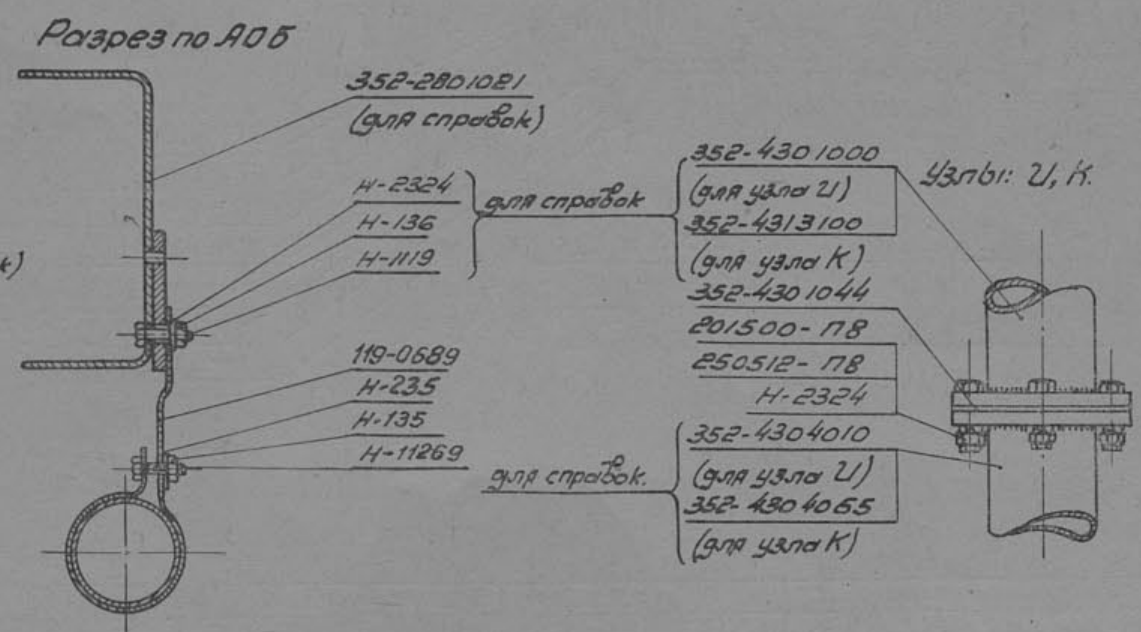 Разрез по АОБ
352-2801021
(для справок)
Н-2324
Н-136
Н-1119
для справок
к)
119-0689
Н-235
Н-135
Н-11269
352-4301000
(для узла И)
352-4313100
(для узла К)
352-4301044
201500-П8
250512-П8
Н-2324
для справок.
352-4304010
(для узла И)
352-4304055
(для узла К)
Узлы: И, К.